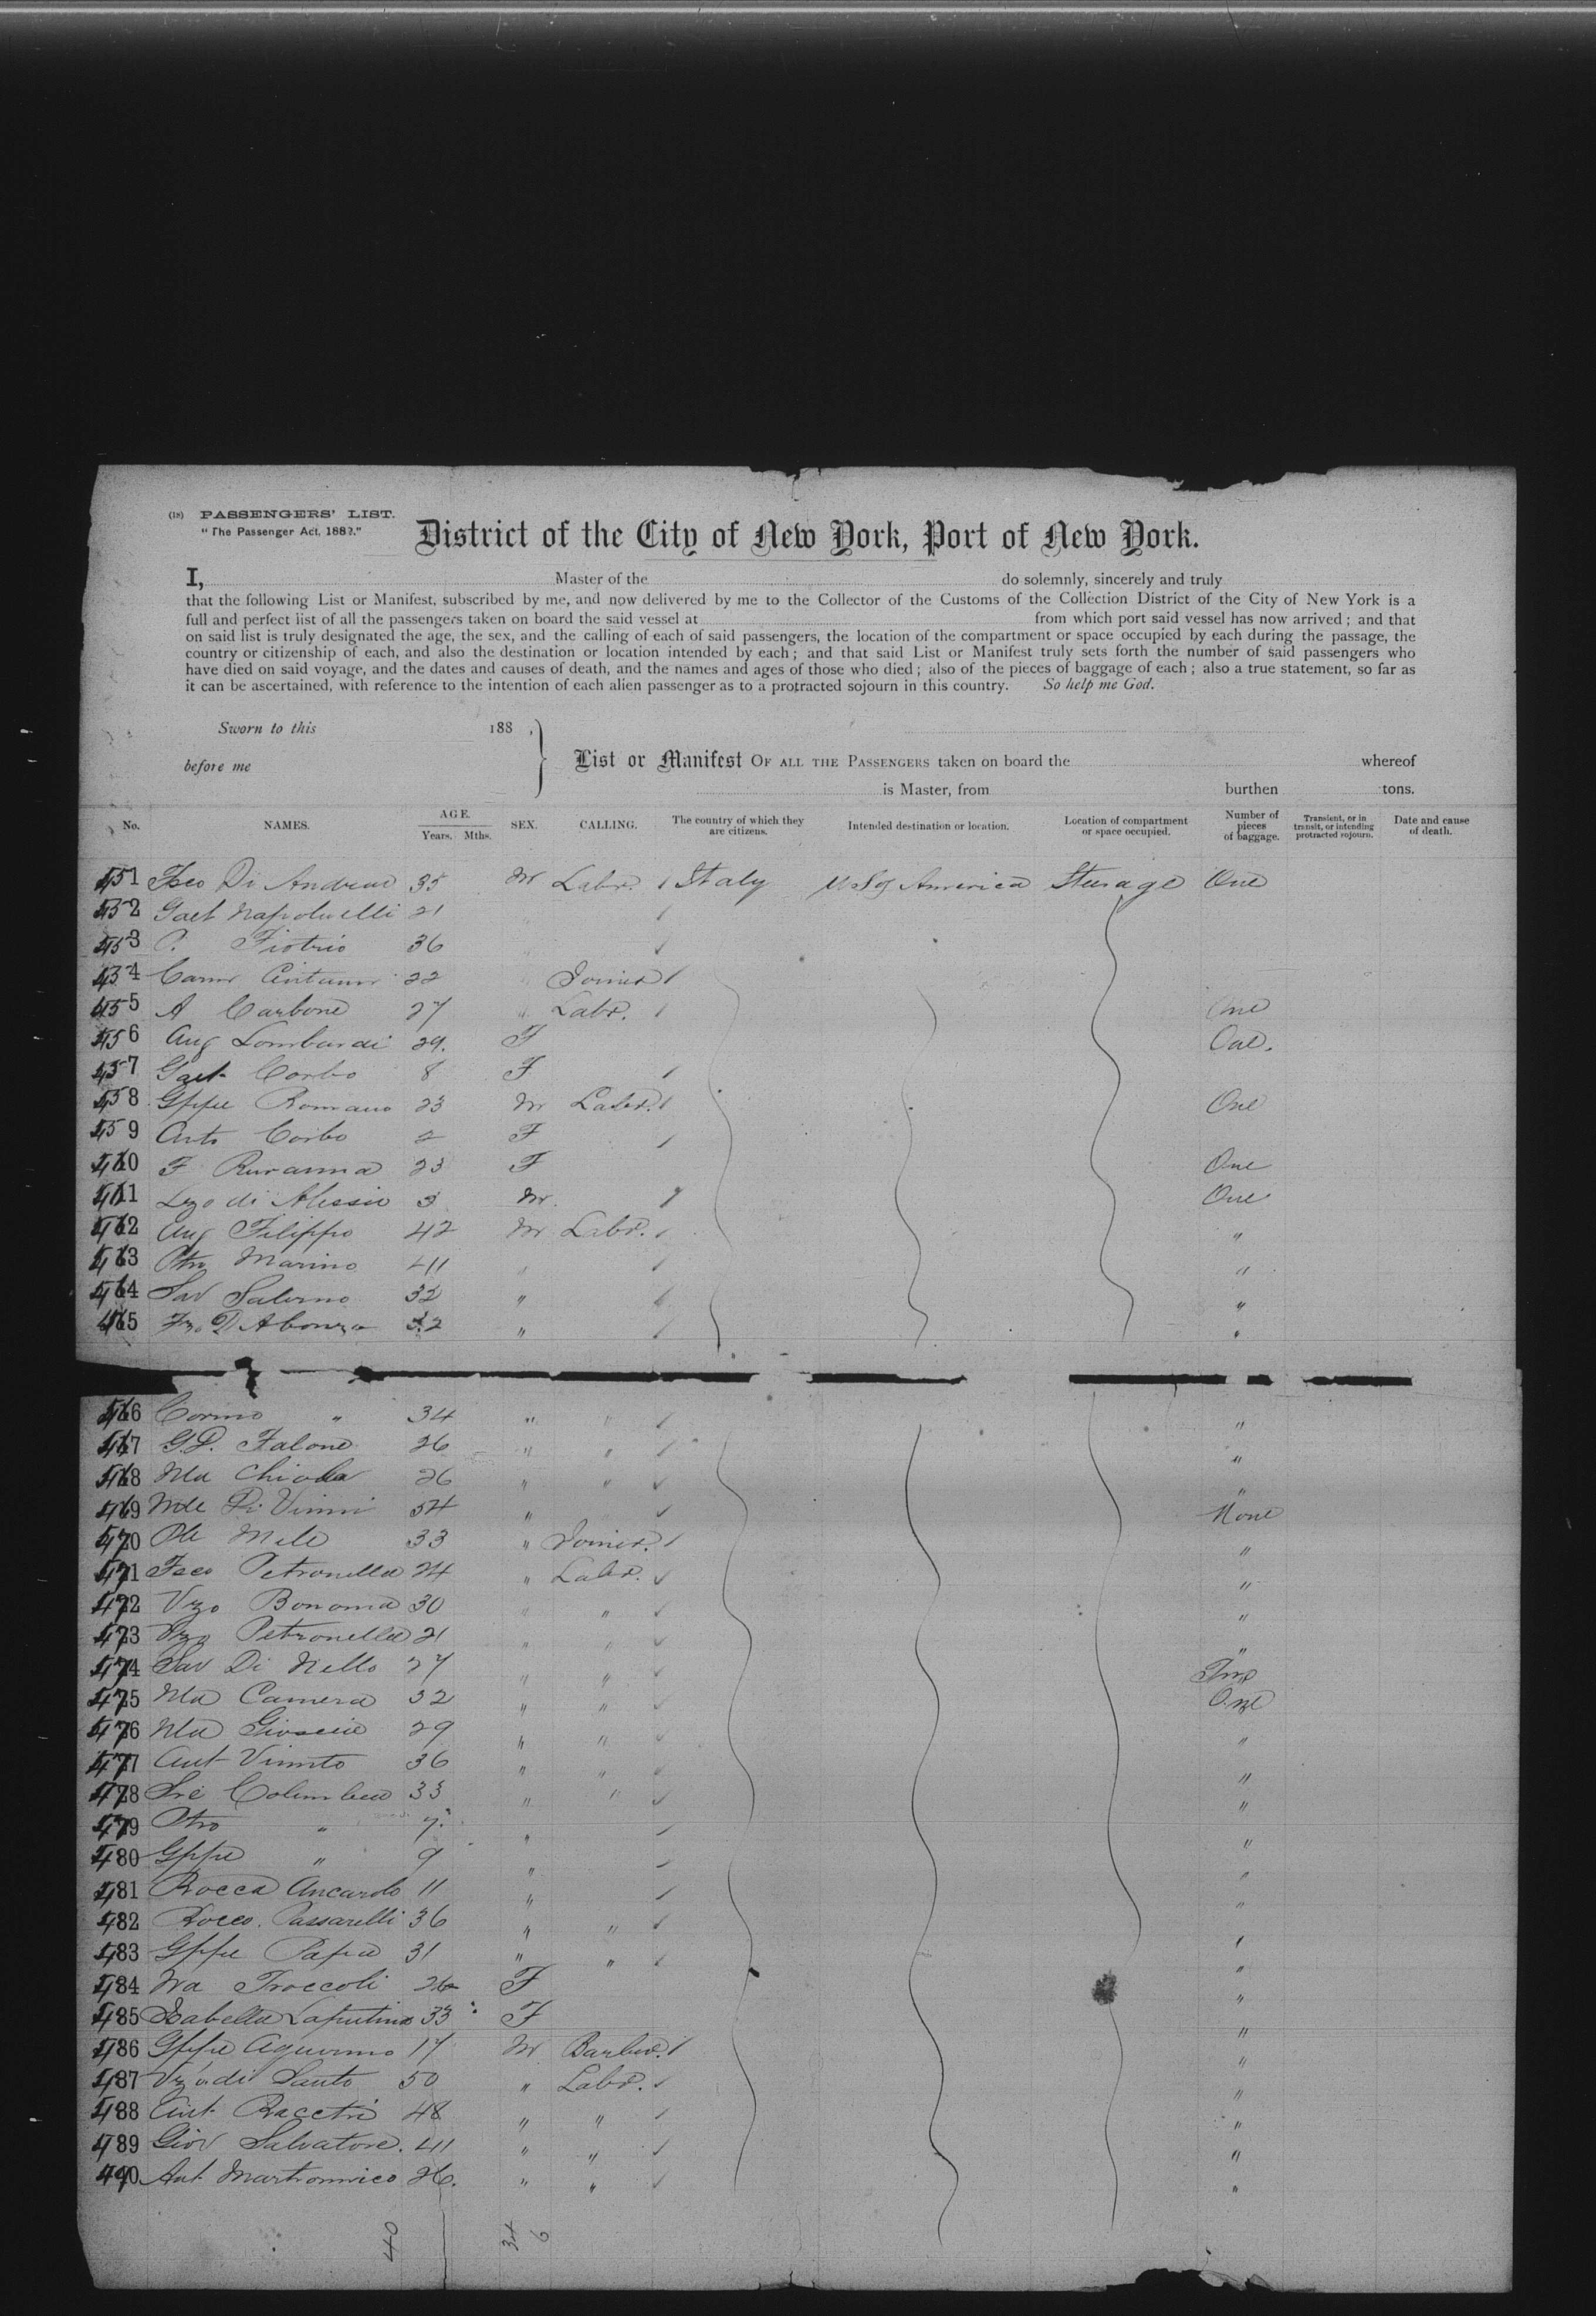 (18) PASSENGERS' LIST.
"The Passenger Act, 1882."
District of the City of New York, Port of New York.
I, Master of the do solemnly, sincerely and truly
that the following List or Manifest, subscribed by me, and now delivered by me to the Collector of the Customs of the Collection District of the City of New York is a
full and perfect list of all the passengers taken on board the said vessel at from which port said vessel has now arrived; and that
on said list is truly designated the age, the sex, and the calling of each of said passengers, the location of the compartment or space occupied by each during the passage, the
country or citizenship of each, and also the destination or location intended by each; and that said List or Manifest truly sets forth the number of said passengers who
have died on said voyage, and the dates and causes of death, and the names and ages of those who died; also of the pieces of baggage of each; also a true statement, so far as
it can be ascertained, with reference to the intention of each alien passenger as to a protracted sojourn in this country. So help me God.
Sworn to this 188 ,
before me
List or Manifest OF ALL THE PASSENGERS taken on board the whereof
is Master, from burthen tons.
No. NAMES. AGE. Years. Mths. SEX. CALLING. The country of which they are citizens. Intended destination or location. Location of compartment or space occupied. Number of pieces of baggage. Transient, or in transit, or intending protracted sojourn. Date and cause of death.
451 Fsco Di Andrea 35 M Labr. Italy U S of America Steerage One
452 Gaet Napolielli 21
453 P. Fiotrio 36
454 22 Joiner
455 A Carbone 27 " Labr. One
456 Aug Lombardi 29. F One.
457 Gaet Corbo 8 F
458 Gppe Romano 23 M Labr. One
459 Corbo 2 F
460 F 23 F One
461 Lzo di Alessio 3 M. One
462 Aug Filippo 42 M Labr. "
463 Ptro Marino 41 " "
464 Sav Salerno 32 " "
465 32 " "
466 Cormo " 34 " " "
467 G.D. Falone 26 " " "
468 Nla Chiola 26 " " "
469 Di Vinni 54 " None
470 Ple Mele 33 " Joiner. "
471 Fsco Petronella 24 " Labr. "
472 Vzo Bonoma 30 " " "
473 Vzo Petronella 21 " " "
474 Sav Di Nello 27 " " Two
475 Nla Camera 32 " " One
476 Nla Gioscia 29 " " "
477 Ant Vinnto 36 " " "
478 Sre Columbea 33 " " "
479 Ptro " 7 " "
480 Gppe " 9 " "
481 Rocca Ancardo 11 " "
482 Rocco. Passarelli 36 " " "
483 Gppe Papa 31 " " "
484 Troccoli 26 F "
485 Isabella Laputina 33 F "
486 Gppe 17 M Barber. "
487 Vzo di Santo 50 " Labr. "
488 Ant Racetri 48 " " "
489 Giov Salvatore. 41 " " "
490 Ant Martonnico 26. " " "
40 34 6